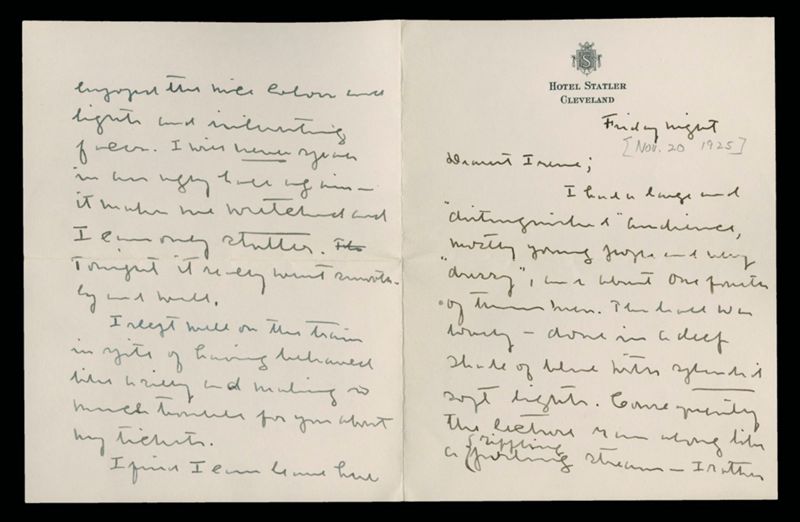 S
HOTEL STATLER
CLEVELAND
Friday night
[Nov. 20 1925]
Dearest Irene;
I had a large and
"distinguished" audience,
mostly young people and very
"dressy", and about one fourth
of them men. The hall was
lovely — done in a deep
shade of blue with splendid
soft lights. Consequently
the lecture ran along like
a (rippling
stream — I rather
enjoyed the nice colors and
lights and interesting
faces. I will never speak
in an ugly hall again —
it makes me wretched and
I can only stutter.
Tonight it really went smooth-
ly and well.
I slept well on the train
in spite of having behaved
like a silly and making so
much trouble for you about
my tickets.
I find I can leave here